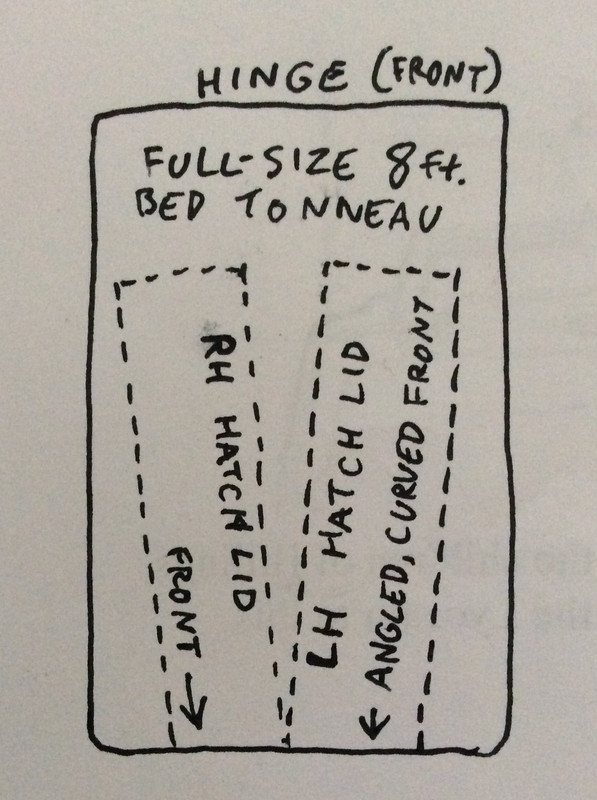 HINGE (FRONT)
FULL-SIZE 8 ft.
BED TONNEAU
RH HATCH LID
FRONT →
LH HATCH LID
← ANGLED, CURVED FRONT